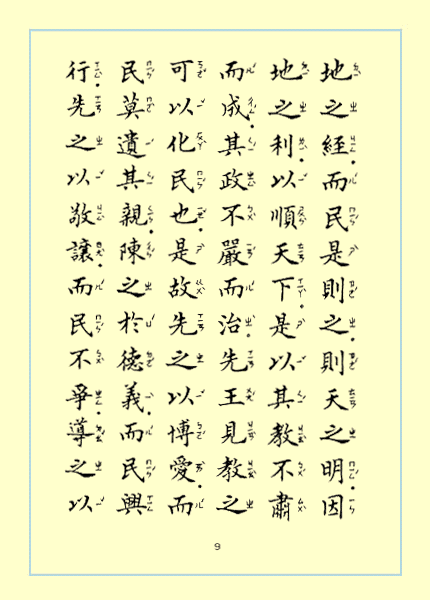 地之經。而民是則之。則天之明。因
地之利。以順天下。是以其教不肅
而成。其政不嚴而治。先王見教之
可以化民也。是故先之以博愛。而
民莫遺其親。陳之於德義。而民興
行。先之以敬讓。而民不爭。導之以
9